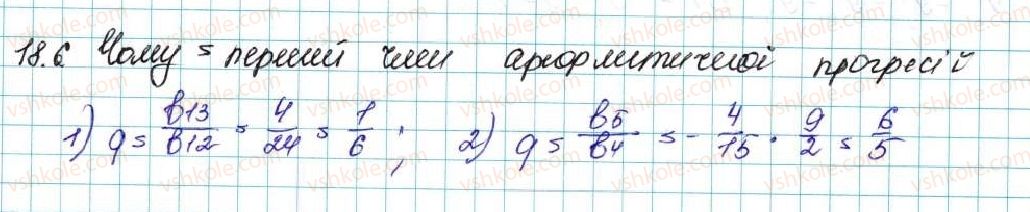 18.6 Чому = перший член арифметичной прогресій
1) q = b13/b12 = 4/24 = 1/6 ; 2) q = b5/b4 = - 4/15 · 9/2 = 6/5